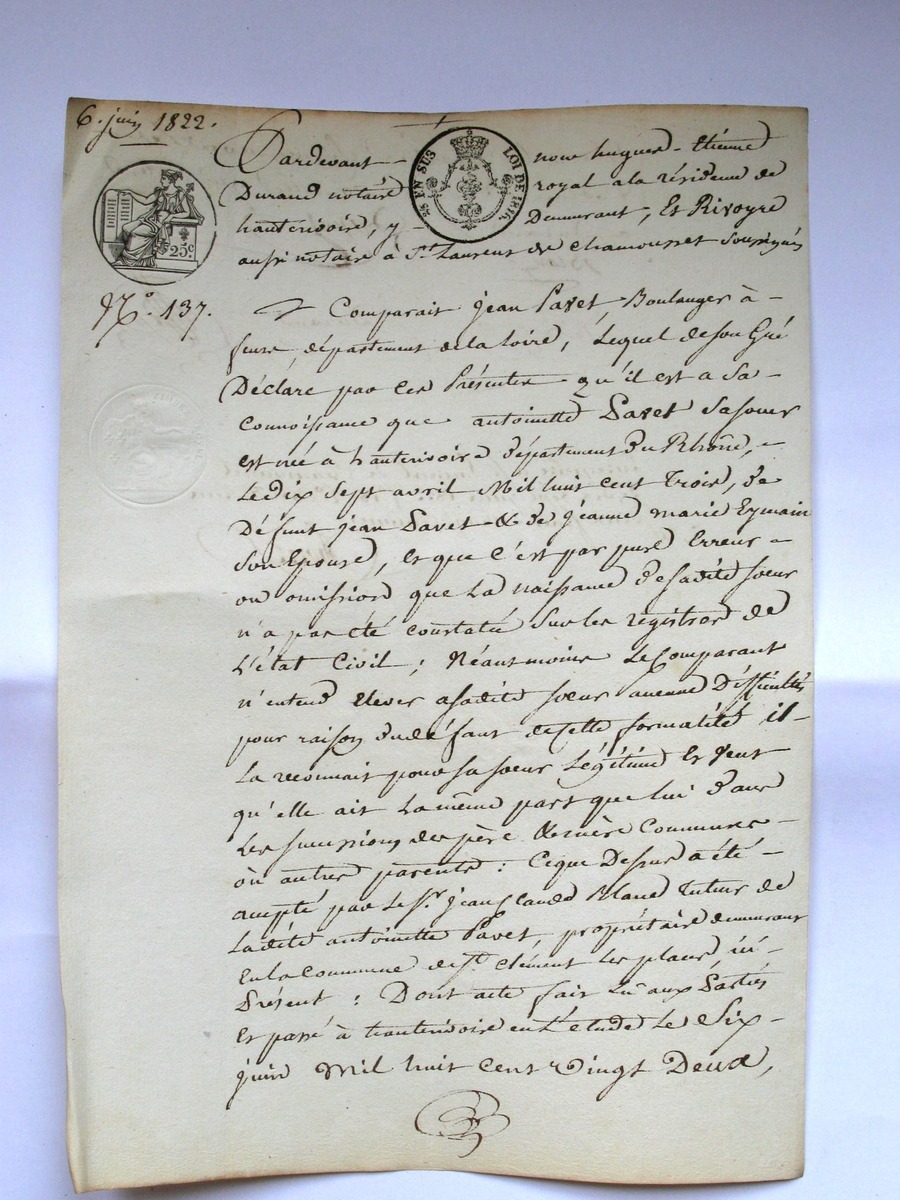 6. juin 1822.
Pardevant - nous hugues-Etienne
Durand notaire royal a la résidence de
hauterivoire, y - Demeurant, Et Rivoyre
aussi notaire à St. Laurent de Chamousset Soussignés
25 EN SUS LOI DE 1816
25c.
N.° 137.
Comparait jean Pavet, Boulanger à -
feurs, département de la Loire, Lequel de son Gré
Déclare par ces Présentes qu'il est a Sa -
Connoissance que antoinette Pavet Sa soeur
est née à hauterivoire département du Rhône, -
Le dix Sept avril Mil huit cent Trois, de
Défunt jean Pavet & de jeanne marie Eymain
Son Epouse, Et que C'est par pure Erreur -
ou omission que La naissance de sadite soeur
n'a pas été constatée Sur les registres de
L'état Civil ; Néantmoins Le Comparant
n'entend Elever a sadite soeur aucune Difficultés
pour raison du défaut de cette formalité il -
La reconnait pour Sa soeur Légitime Et Veut
qu'elle ait La même part que lui dans
Les successions des père & mère Communs -
où autres parents : Ce que Dessus a été -
accepté par Le Sr. jean Claude Blanc Tuteur de
Ladite antoinette Pavet, propriétaire demeurant
En la Commune de St. Clément les places, ici -
Présent : Dont acte fait Lu aux Parties
Et passé à hauterivoire en L'étude Le Six -
juin Mil huit Cent Vingt Deux,